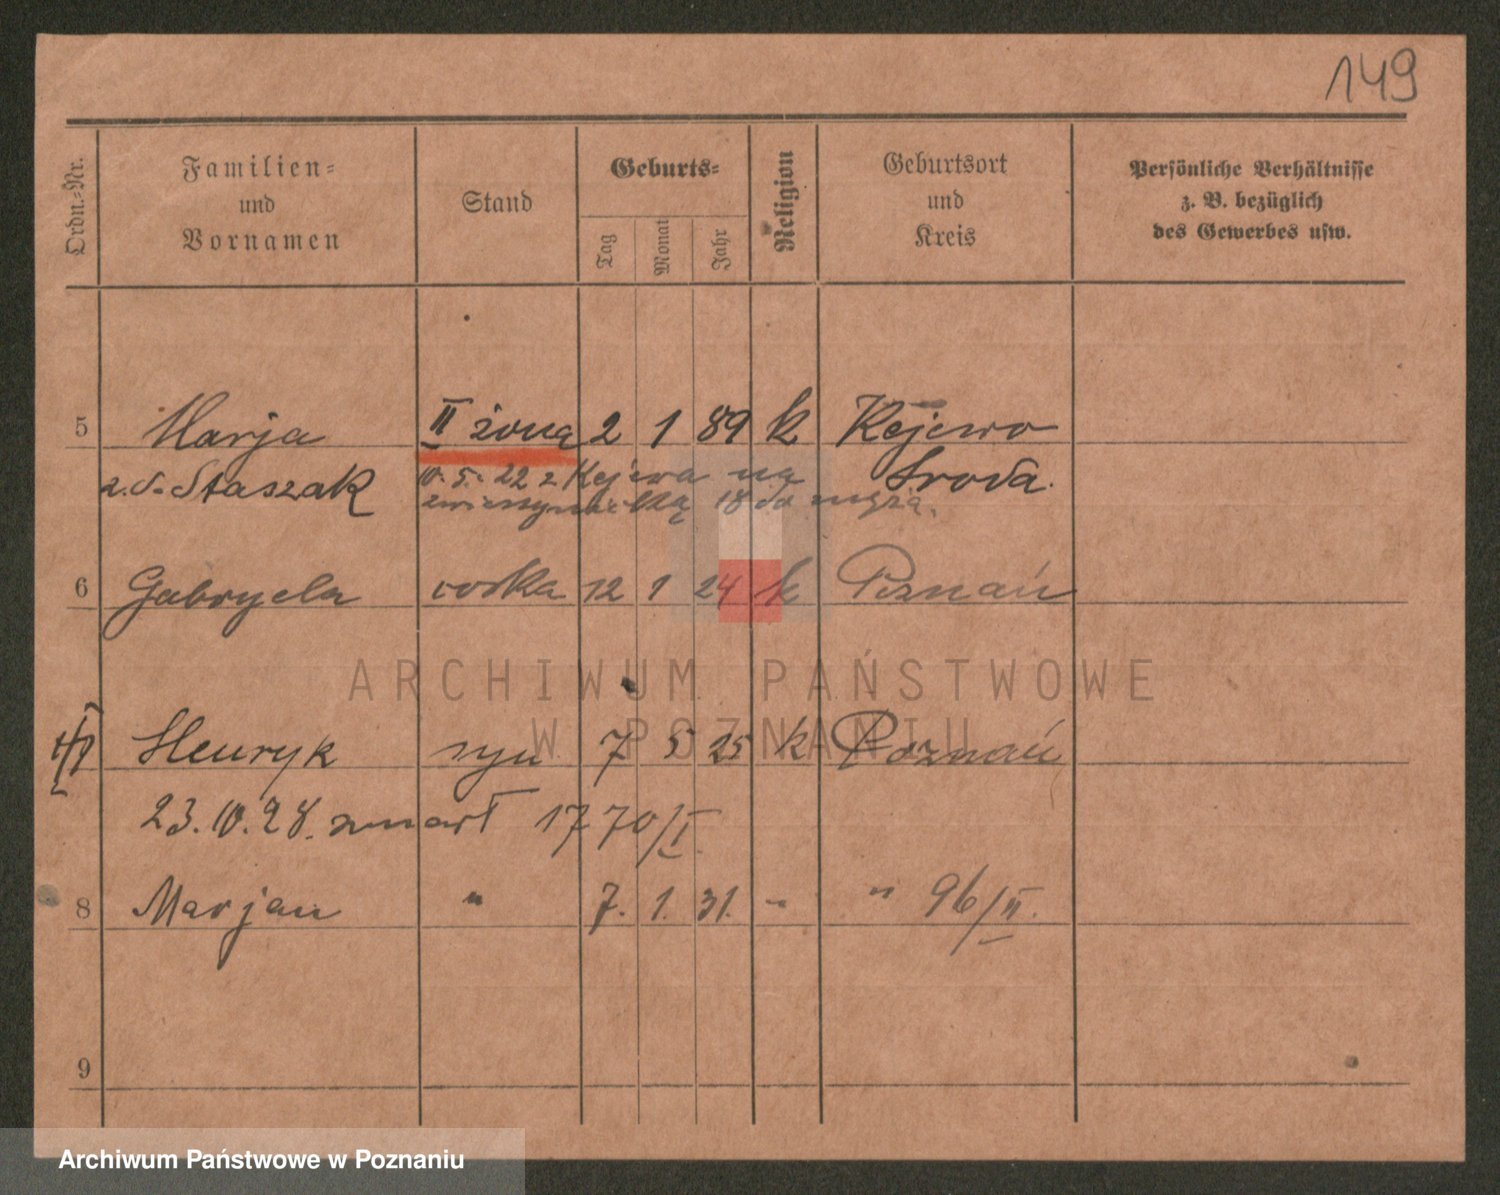 149
Ordn.-Nr.
Familien-
und
Vornamen
Stand
Geburts-
Tag
Monat
Jahr
Religion
Geburtsort
und
Kreis
Persönliche Verhältnisse
z. B. bezüglich
des Gewerbes usw.
5 Marja II żona 2 1 89 k Kejewo
z.d. Staszak 10.5.22 z Kejewa na Środa.
18 do męża.
6 Gabryela córka 12 1 24 k Poznań
ARCHIWUM PAŃSTWOWE
W POZNANIU
Henryk syn 7 5 25 k Poznań
23.10.28. zmarł 1770/I.
8 Marjan " 7. 1. 31. " " 96/II.
9
Archiwum Państwowe w Poznaniu